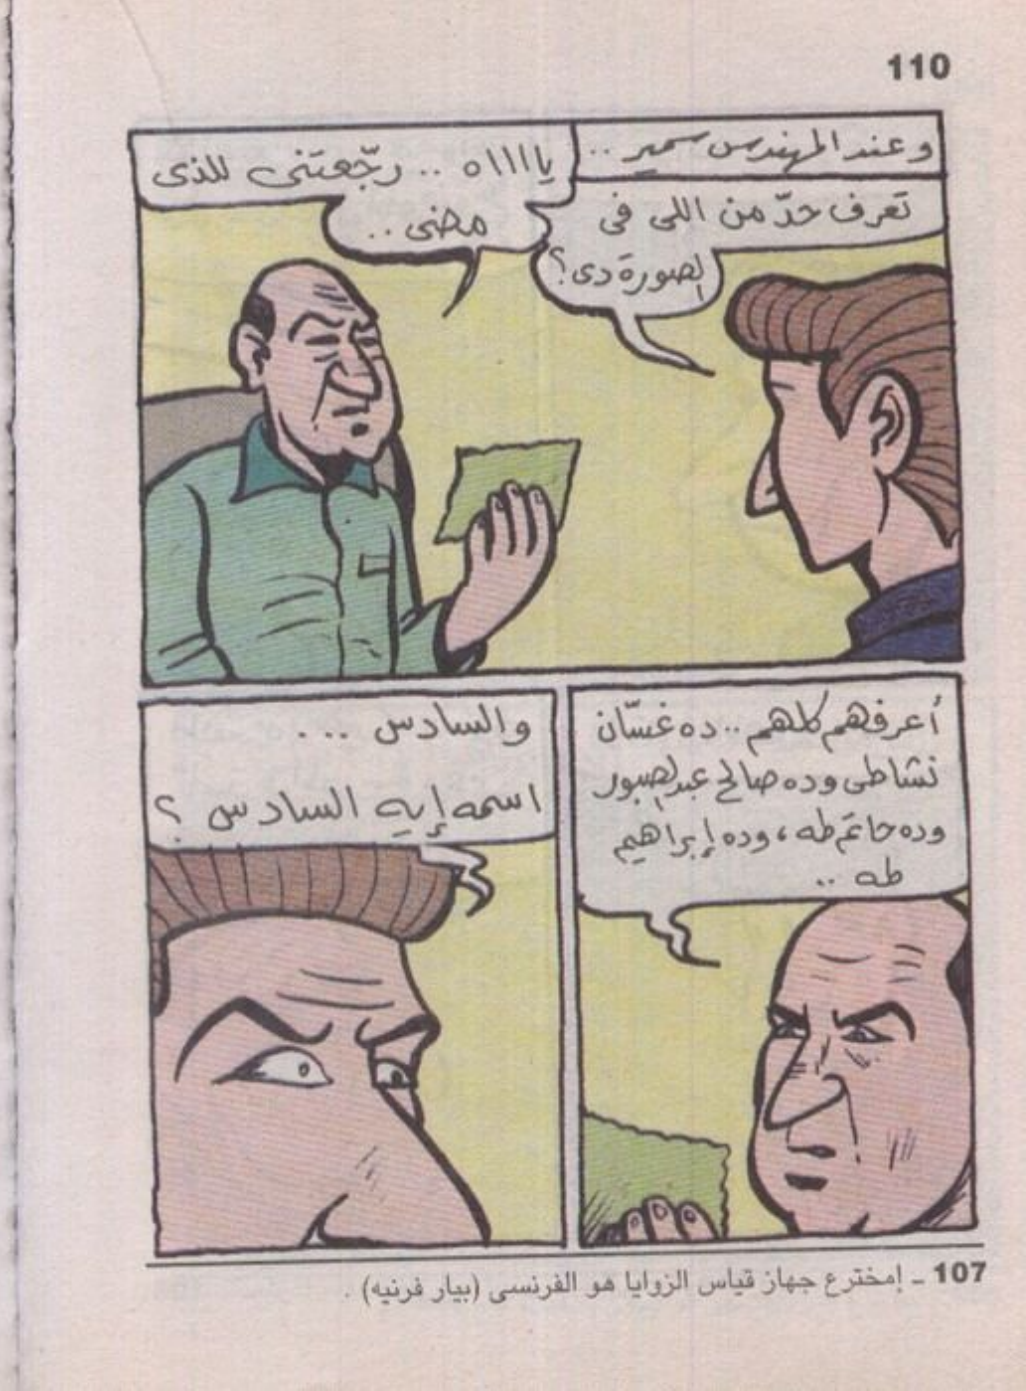 110
وعند المهندس سمير ..
تعرف حدّ من اللى فى
الصورة دى؟
ياااااه .. رجّعتنى للذى
مضى ..
أعرفهم كلهم .. ده غسّان
نشاطى وده صالح عبدالصبور
وده حاتم طه ، وده إبراهيم
طه ..
والسادس ...
اسمه إيه السادس ؟
107 ـ إمخترع جهاز قياس الزوايا هو الفرنسى (بيار فرنيه) .